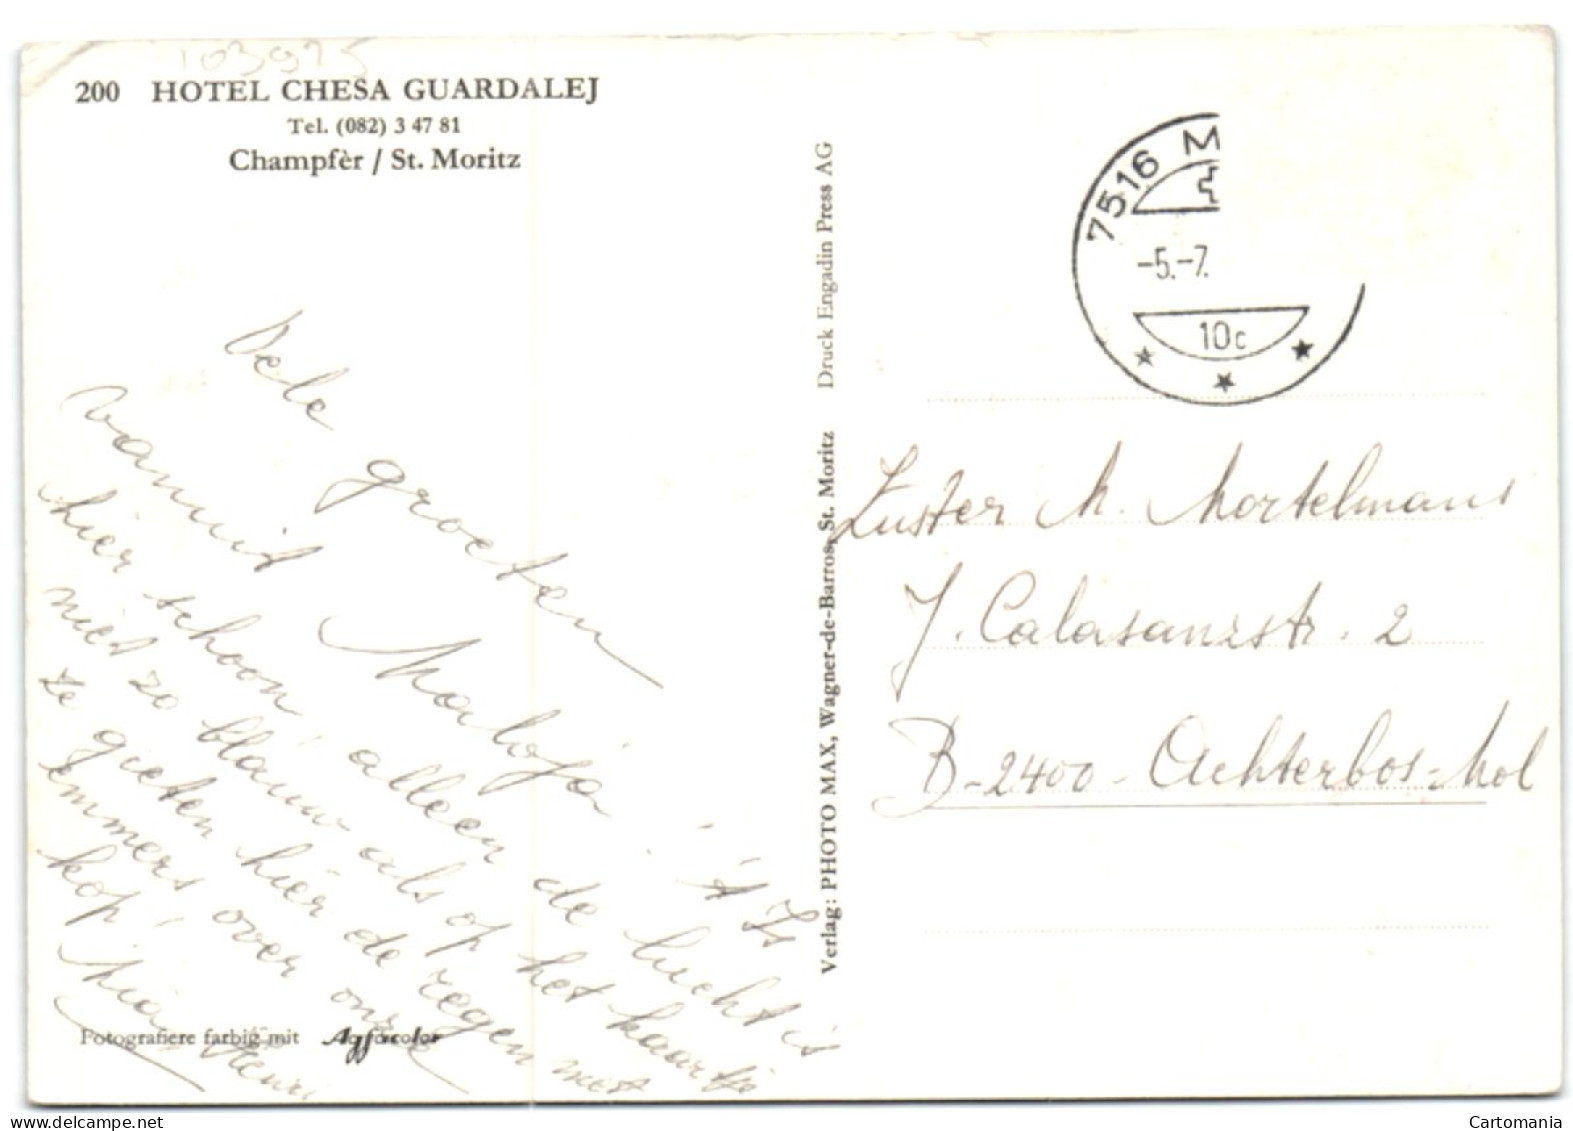 103925
200 HOTEL CHESA GUARDALEJ
Tel. (082) 3 47 81
Champfèr / St. Moritz
Vele groeten
vanuit Maloja. 't Is
hier schoon, alleen de lucht is
niet zo blauw als op het kaartje
te gieten hier de regen met
emmers over onze
kop!
Mia
Henri
Fotografiere farbig mit Agfacolor
Verlag: PHOTO MAX, Wagner-de-Barros, St. Moritz Druck Engadin Press AG
7516 M
-5.-7.
10c
Zuster M. Mortelmans
J. Calasanzstr. 2
B-2400-Achterbos-Mol
Cartomania